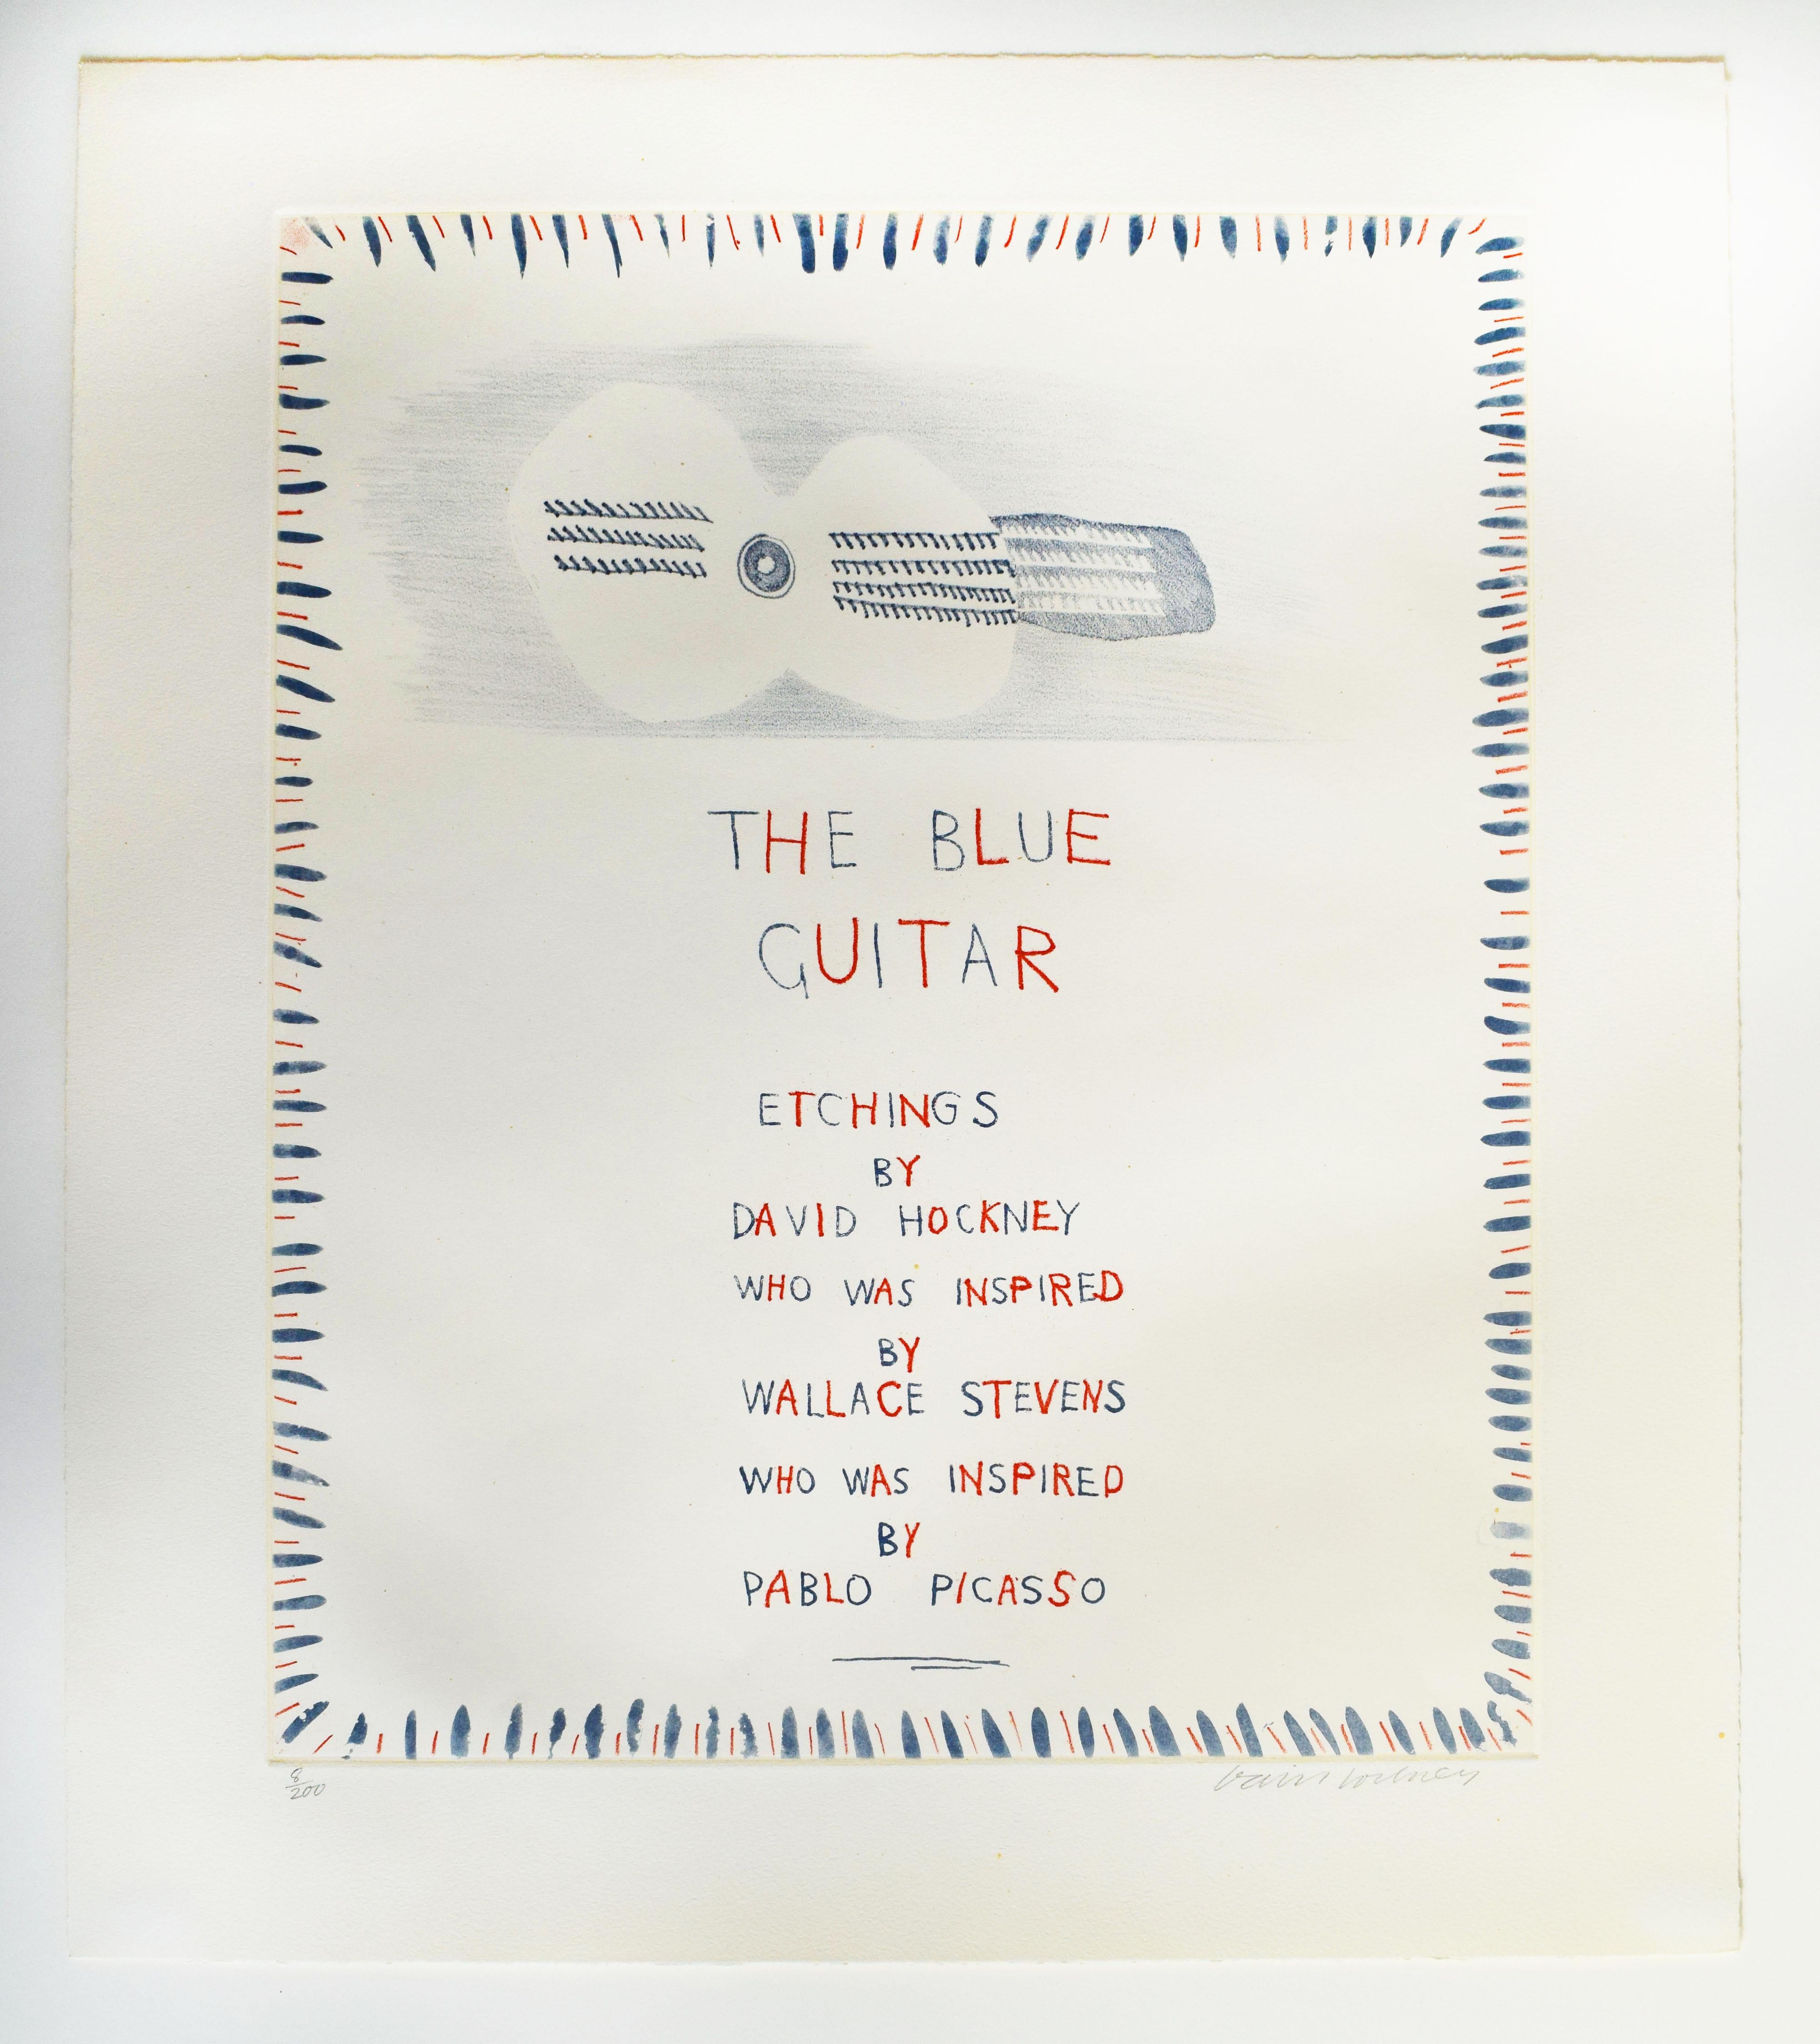 THE BLUE
GUITAR
ETCHINGS
BY
DAVID HOCKNEY
WHO WAS INSPIRED
BY
WALLACE STEVENS
WHO WAS INSPIRED
BY
PABLO PICASSO
8/200
David Hockney